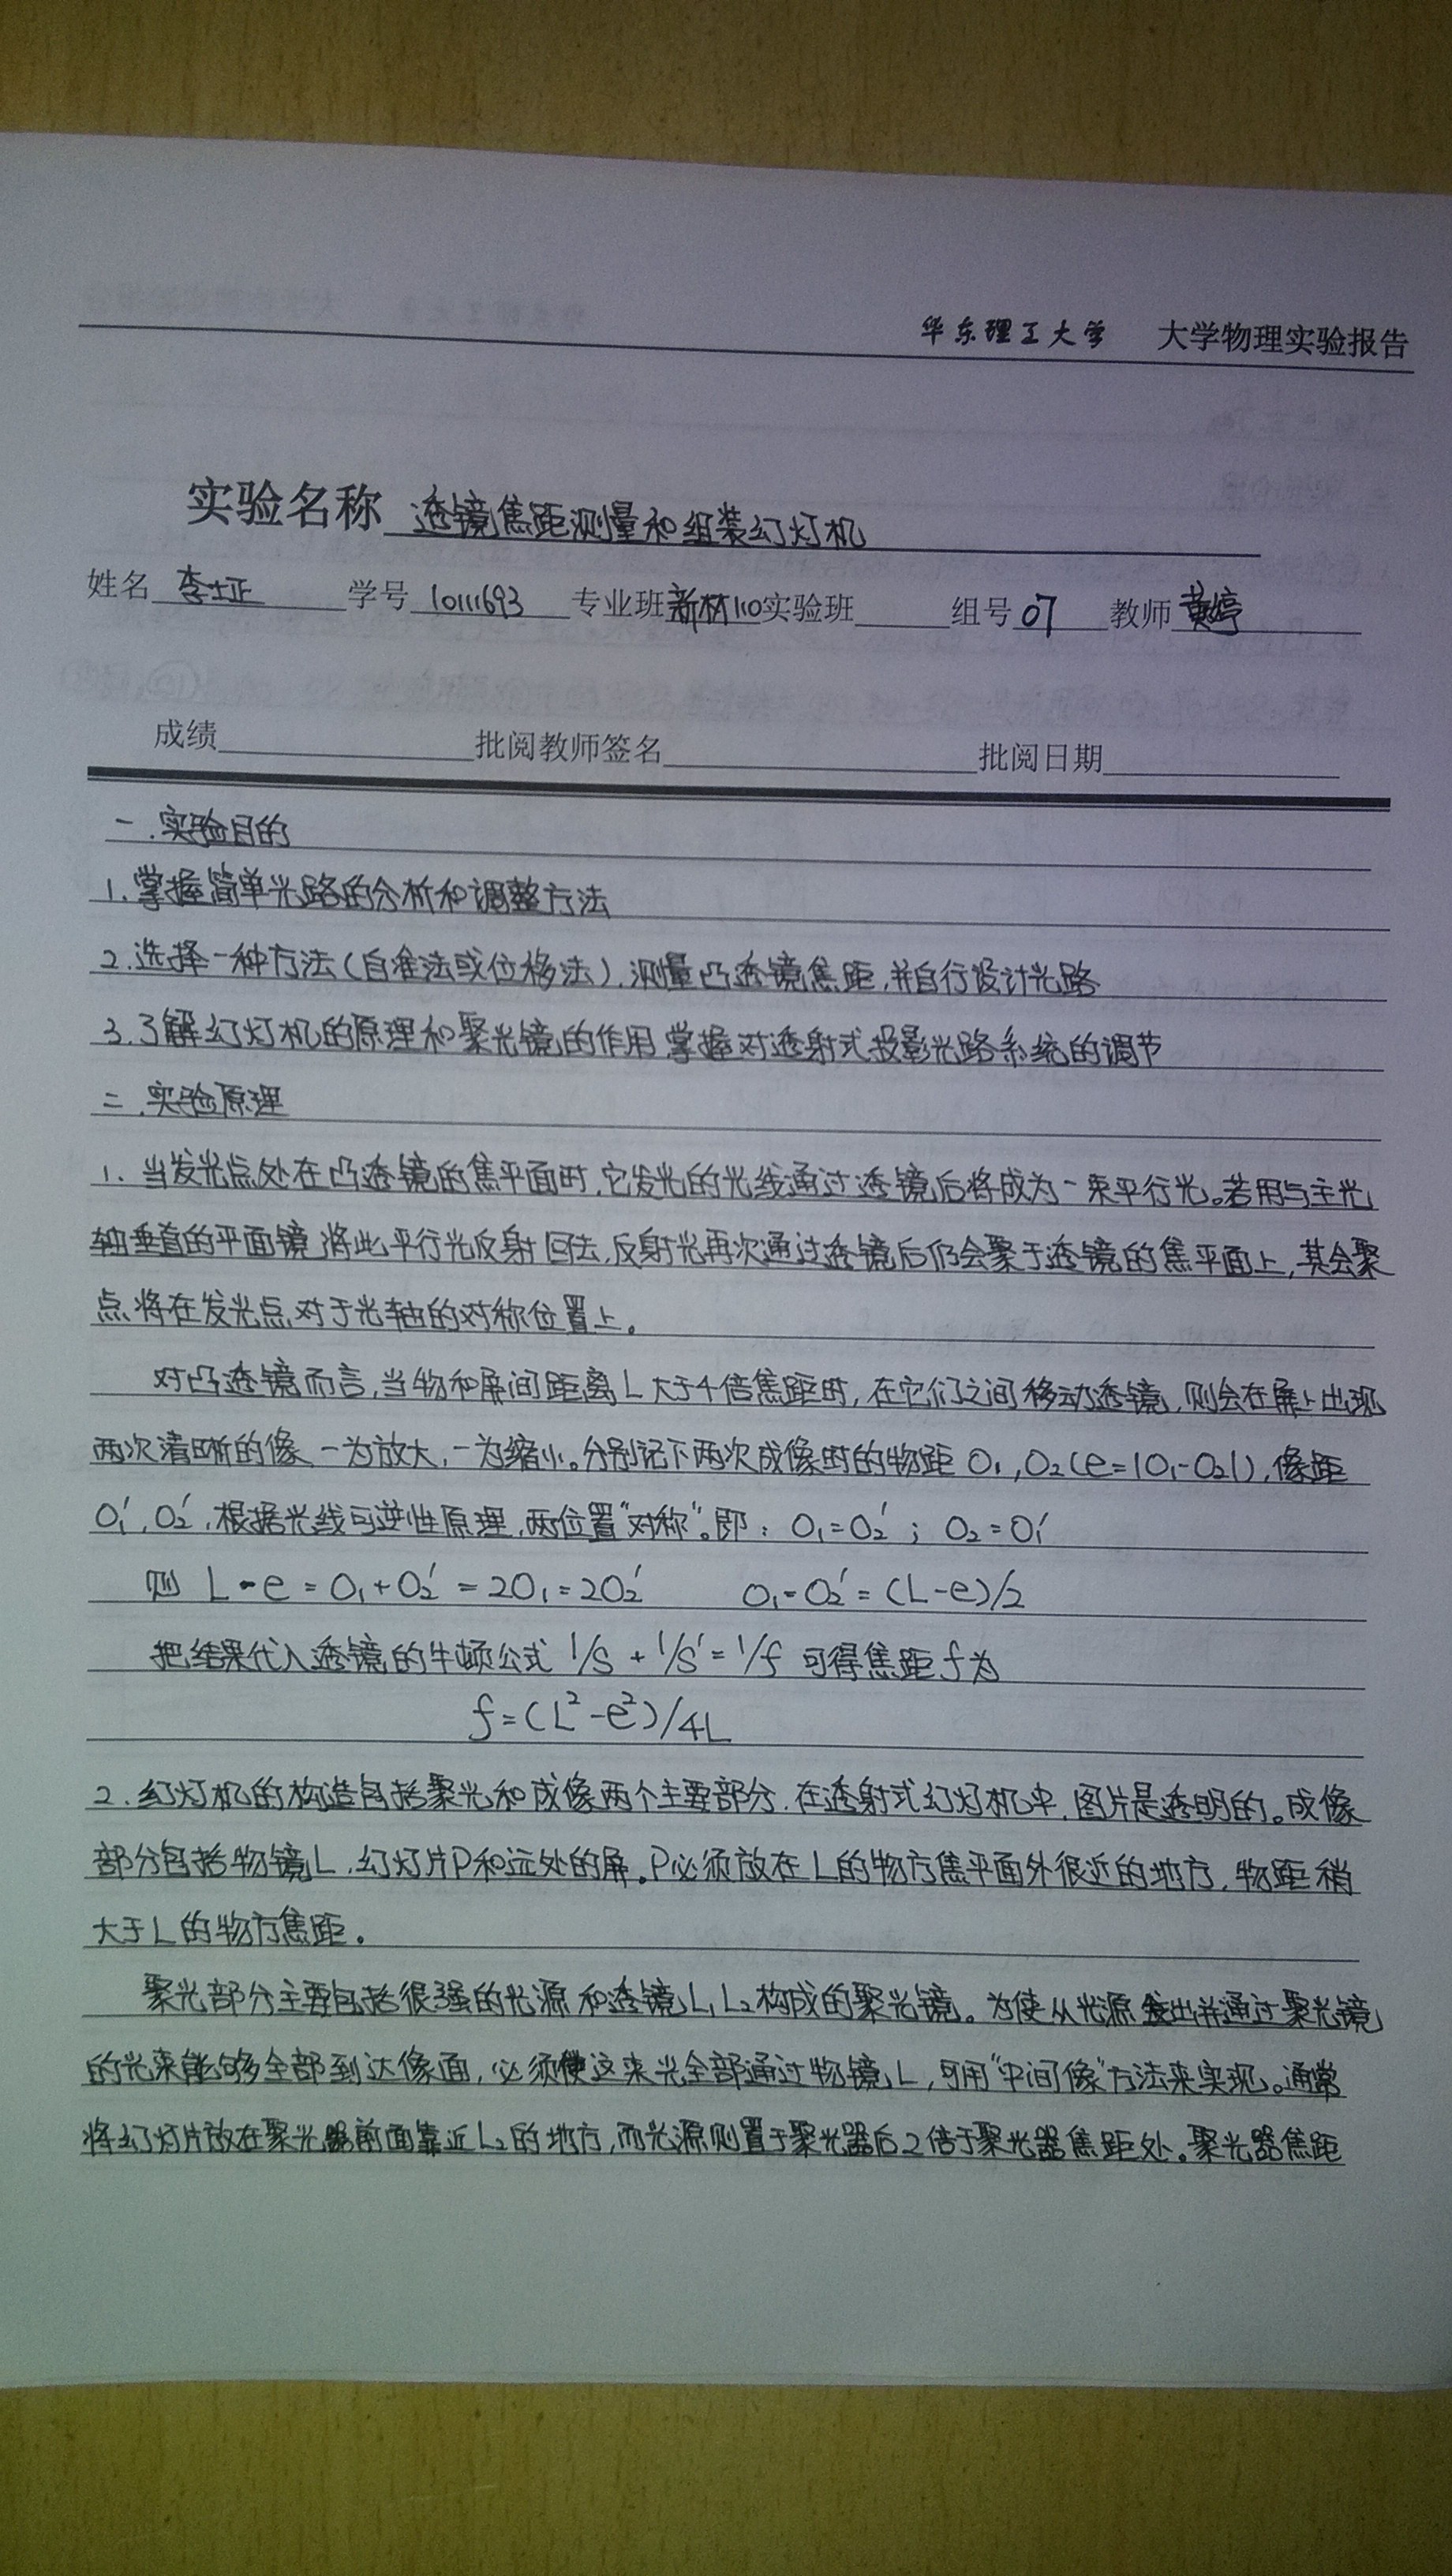 华东理工大学 大学物理实验报告
实验名称 透镜焦距测量和组装幻灯机
姓名 李士正 学号 10111693 专业班 新材110 实验班 组号 07 教师 黄婷
成绩 批阅教师签名 批阅日期
一.实验目的
1.掌握简单光路的分析和调整方法
2.选择一种方法(自准法或位移法),测量凸透镜焦距,并自行设计光路
3.了解幻灯机的原理和聚光镜的作用,掌握对透射式投影光路系统的调节
二.实验原理
1.当发光点处在凸透镜的焦平面时,它发光的光线通过透镜后将成为一束平行光。若用与主光
轴垂直的平面镜将此平行光反射回去,反射光再次通过透镜后仍会聚于透镜的焦平面上,其会聚
点将在发光点对于光轴的对称位置上。
对凸透镜而言,当物和屏间距离L大于4倍焦距时,在它们之间移动透镜,则会在屏上出现
两次清晰的像,一为放大,一为缩小。分别记下两次成像时的物距O₁,O₂(e=|O₁-O₂|),像距
O₁′,O₂′,根据光线可逆性原理,两位置"对称"。即:O₁=O₂′;O₂=O₁′
则 L-e=O₁+O₂′=2O₁=2O₂′ O₁=O₂′=(L-e)/2
把结果代入透镜的牛顿公式 1/S+1/S′=1/f 可得焦距f为
f=(L²-e²)/4L
2.幻灯机的构造包括聚光和成像两个主要部分,在透射式幻灯机中,图片是透明的。成像
部分包括物镜L,幻灯片P和远处的屏。P必须放在L的物方焦平面外很近的地方,物距稍
大于L的物方焦距。
聚光部分主要包括很强的光源和透镜L₁L₂构成的聚光镜。为使从光源发出并通过聚光镜
的光束能够全部到达像面,必须使这束光全部通过物镜L,可用"中间像"方法来实现。通常
将幻灯片放在聚光器前面靠近L₂的地方,而光源则置于聚光器后2倍于聚光器焦距处。聚光器焦距